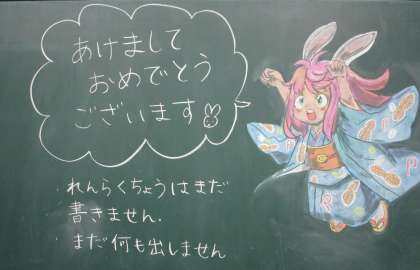 あけまして
おめでとう
ございます
・れんらくちょうはまだ
書きません.
・まだ何も出しません